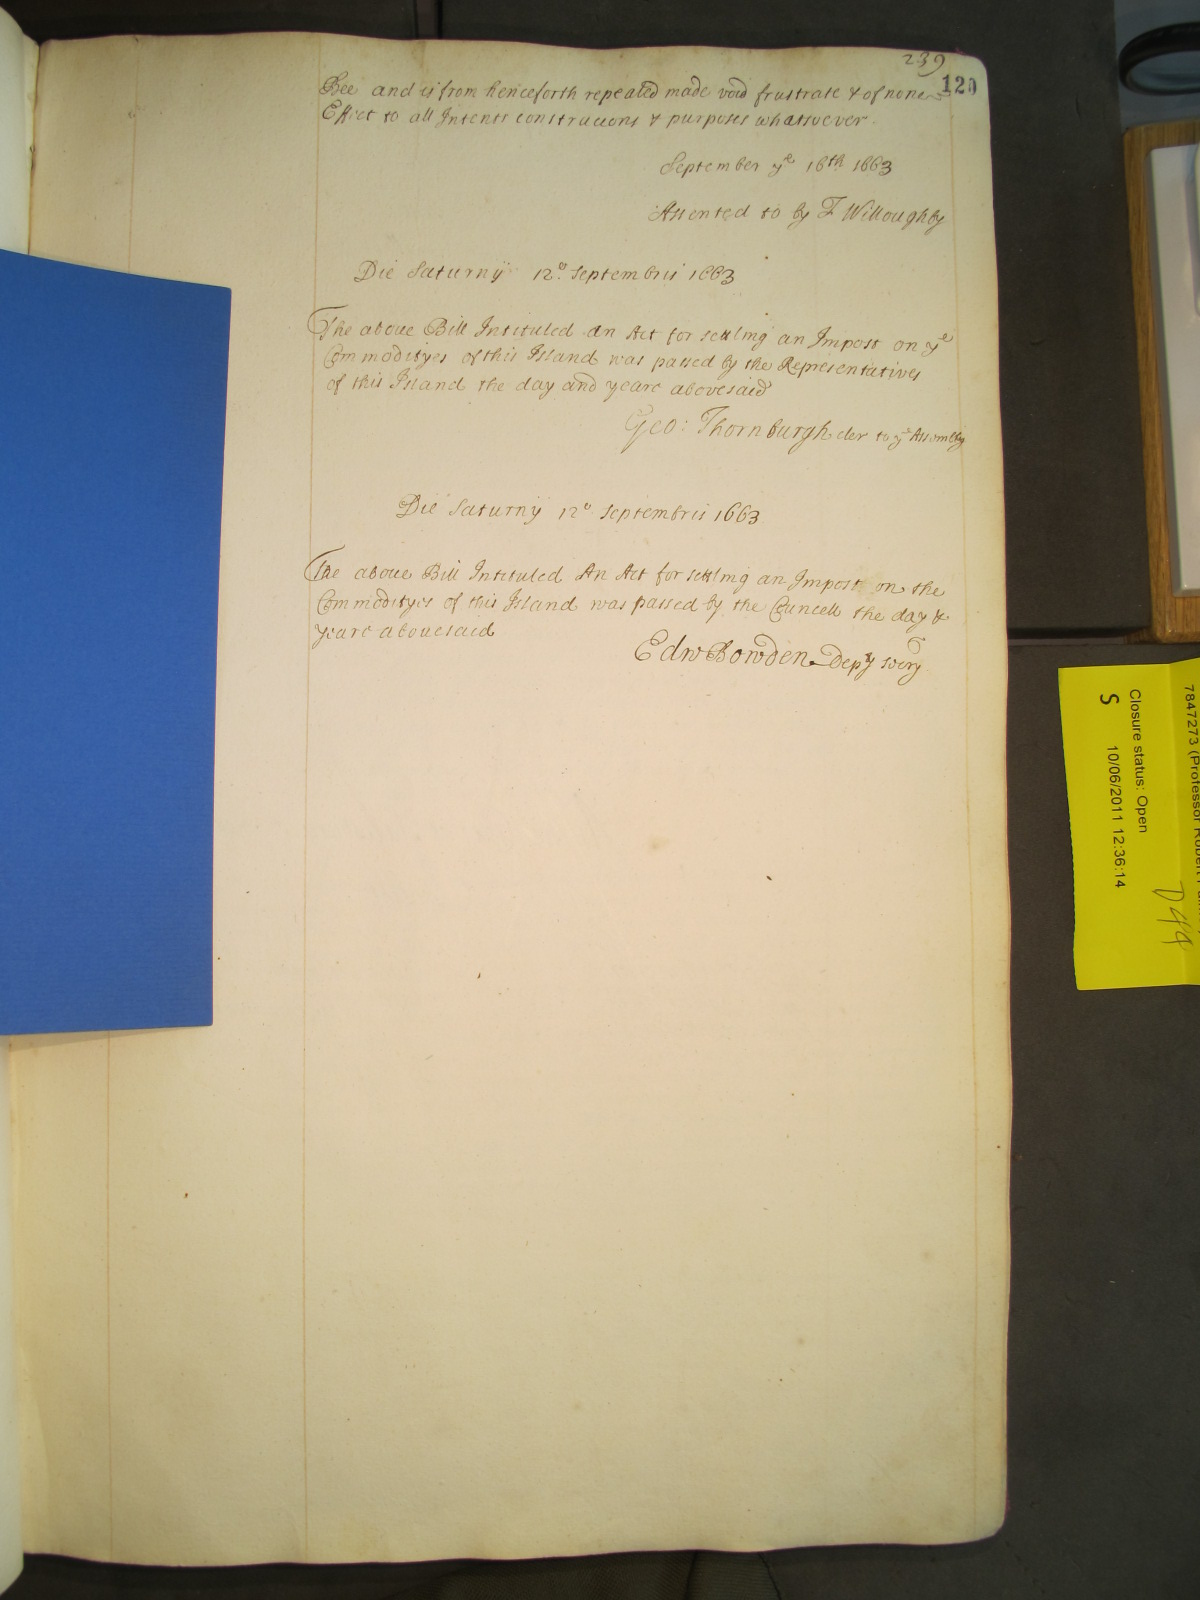 239
120
Bee and is from henceforth repealed made void frustrate & of none
Effect to all Intents construccons & purposes whatsoever
September ye 16th 1663
Assented to by F Willoughby
Die Saturnij 12o Septembris 1663
The above Bill Intituled an Act for setling an Impost on ye
Commodityes of this Island was passed by the Representatives
of this Island the day and yeare abovesaid
Geo: Thornburgh cler to ye Assembly
Die Saturnij 12o Septembris 1663
The above Bill Intituled An Act for setling an Impost on the
Commodityes of this Island was passed by the Councell the day &
yeare abovesaid
Edw Bowden Depty Secry
7847273 (Professor Robert
Closure status: Open
S 10/06/2011 12:36:14